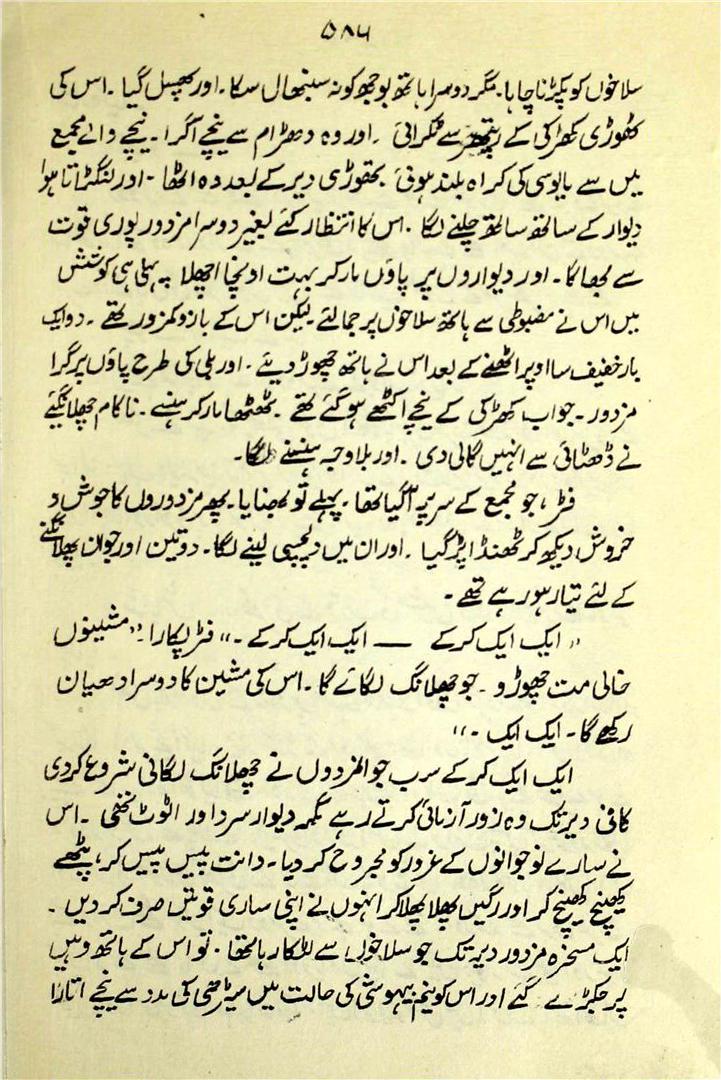 ۵۸۶
سلاخوں کو پکڑنا چاہا۔ مگر دوسرا ہاتھ بوجھ کو نہ سنبھال سکا۔ اور پھسل گیا۔ اس کی
ٹھوڑی کھڑکی کے پتھر سے ٹکرائی۔ اور وہ دھڑام سے نیچے آگرا۔ نیچے والے مجمع
میں سے مایوسی کی کراہ بلند ہوئی۔ تھوڑی دیر کے بعد وہ اٹھا۔ اور لنگڑاتا ہوا
دیوار کے ساتھ ساتھ چلنے لگا۔ اس کا انتظار کئے بغیر دوسرا مزدور پوری قوت
سے بھاگا۔ اور دیواروں پر پاؤں مار کر بہت اونچا اچھلا پہلی ہی کوشش
میں اس نے مضبوطی سے ہاتھ سلاخوں پر جمالئے لیکن اس کے بازو کمزور تھے۔ دو ایک
بار خفیف سا اوپر اٹھنے کے بعد اس نے ہاتھ چھوڑ دیئے۔ اور بلی کی طرح پاؤں پر گرا
مزدور۔ جو اب کھڑکی کے نیچے اکٹھے ہوگئے تھے۔ ٹھٹھا مار کر ہنسے۔ ناکام چھلانگیئے
نے ڈھٹائی سے انہیں گالی دی۔ اور بلاوجہ ہنسنے لگا۔
فٹر، جو مجمع کے سر پر آگیا تھا۔ پہلے تو بھنایا۔ پھر مزدوروں کا جوش و
خروش دیکھ کر ٹھنڈا پڑ گیا۔ اور ان میں دلچسپی لینے لگا۔ دو تین اور جوان پھلانگنے
کے لئے تیار ہو رہے تھے۔
"ایک ایک کرکے — ایک ایک کرکے۔" فٹر پکارا۔ "مشینوں
خالی مت چھوڑو۔ جو چھلانگ لگائے گا۔ اس کی مشین کا دوسرا دھیان
رکھے گا۔ ایک ایک۔"
ایک ایک کرکے سب جوانمردوں نے چھلانگ لگانی شروع کردی
کافی دیر تک وہ زور آزمائی کرتے رہے مگر دیوار سرد اور اٹوٹ تھی۔ اس
نے سارے نوجوانوں کے غرور کو مجروح کر دیا۔ دانت پیس پیس کر، پٹھے
کھینچ کھینچ کر اور رگیں پھلا پھلا کر انہوں نے اپنی ساری قوتیں صرف کردیں۔
ایک مسخرہ مزدور دیر تک جو سلاخوں سے لٹکا رہا تھا۔ تو اس کے ہاتھ وہیں
پر جکڑے گئے اور اس کو نیم بیہوشی کی حالت میں سیڑھی کی مدد سے نیچے اتارا